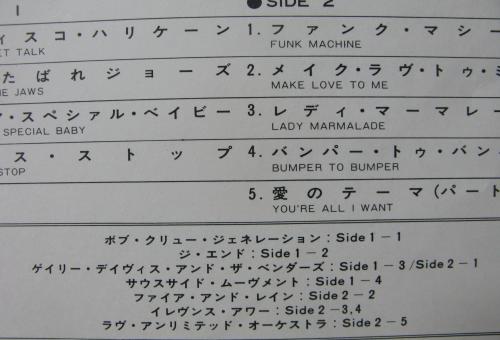 I
ィスコ・ハリケーン
ET TALK
たばれジョーズ
HE JAWS
・スペシャル・ベイビー
SPECIAL BABY
ス・ストップ
STOP
●SIDE 2
1. ファンク・マシー
FUNK MACHINE
2. メイク・ラヴ・トゥ・ミ
MAKE LOVE TO ME
3. レディ・マーマレー
LADY MARMALADE
4. バンパー・トゥ・バン
BUMPER TO BUMPER
5. 愛のテーマ(パート
YOU'RE ALL I WANT
ボブ・クリュー・ジェネレーション:Side 1-1
ジ・エンド:Side 1-2
ゲイリー・デイヴィス・アンド・ザ・ベンダーズ:Side 1-3/Side 2-1
サウスサイド・ムーヴメント:Side 1-4
ファイア・アンド・レイン:Side 2-2
イレヴンス・アワー:Side 2-3,4
ラヴ・アンリミテッド・オーケストラ:Side 2-5